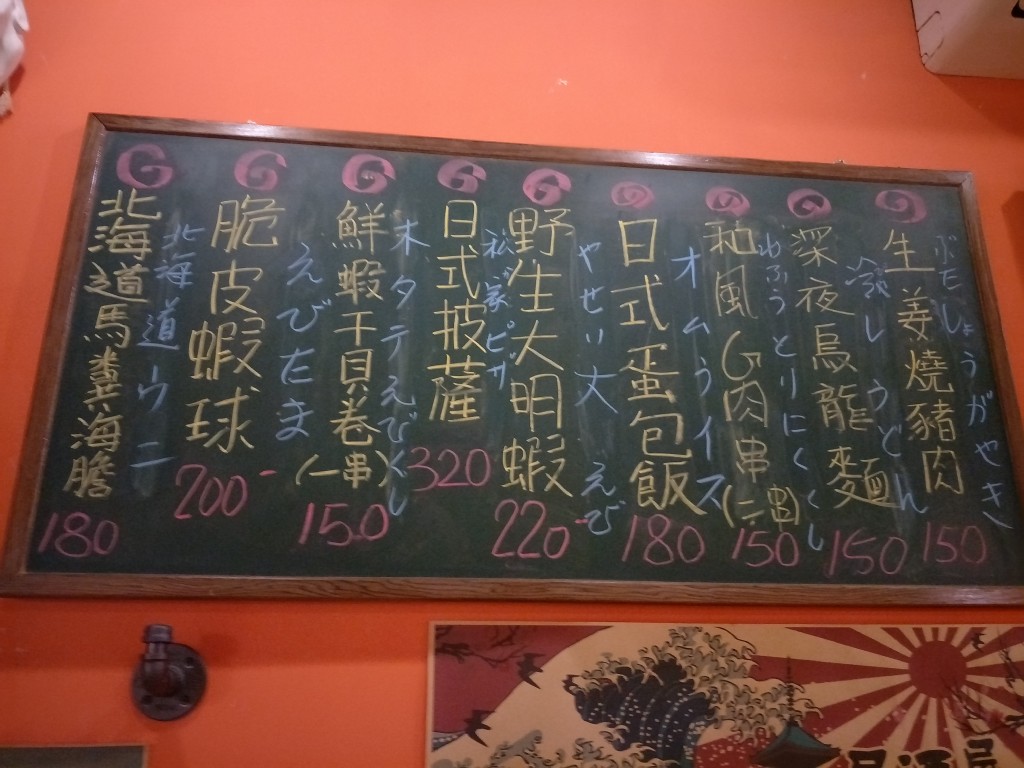 ぶたしょうがやき
生姜燒豬肉
150
冷しうどん
深夜烏龍麵
150
わふうとりにくくし
和風G肉串
(二串)
150
オムライス
日式蛋包飯
180
やせい大えび
野生大明蝦
220-
ピザ
日式披薩
320
ホタテえびくし
鮮蝦干貝卷
(一串)
150
えびたま
脆皮蝦球
200-
北海道ウニ
北海道馬糞海膽
180
居酒屋